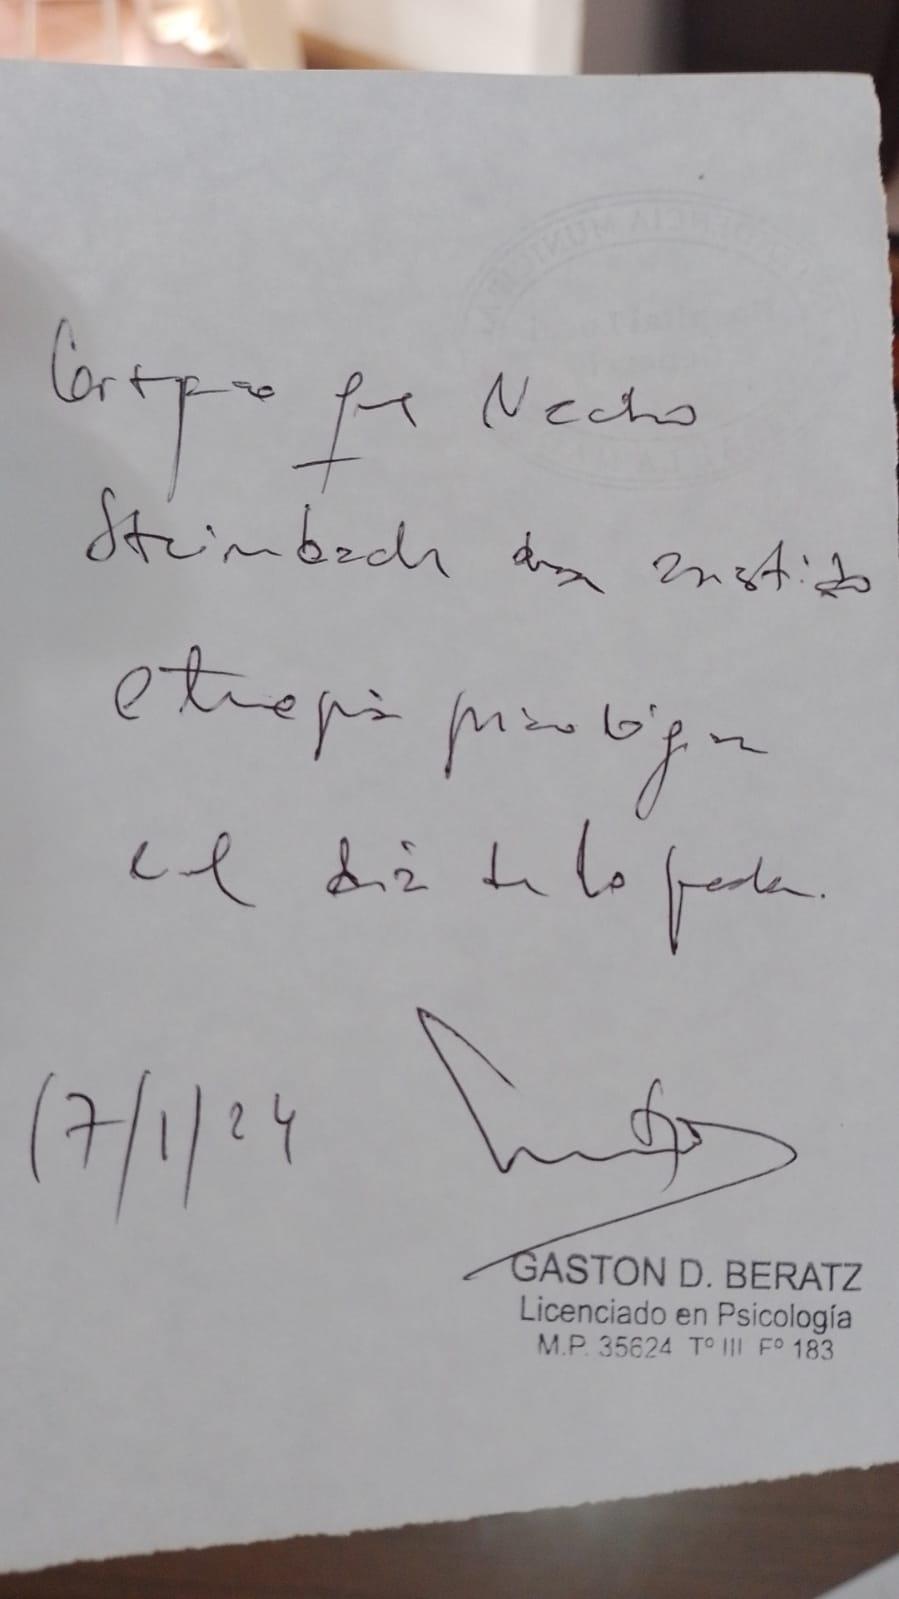 Certifico que Nacho
Steimbach ha asistido
a terapia psicológica
el día de la fecha.
17/1/24
GASTON D. BERATZ
Licenciado en Psicología
M.P. 35624 Tº III Fº 183